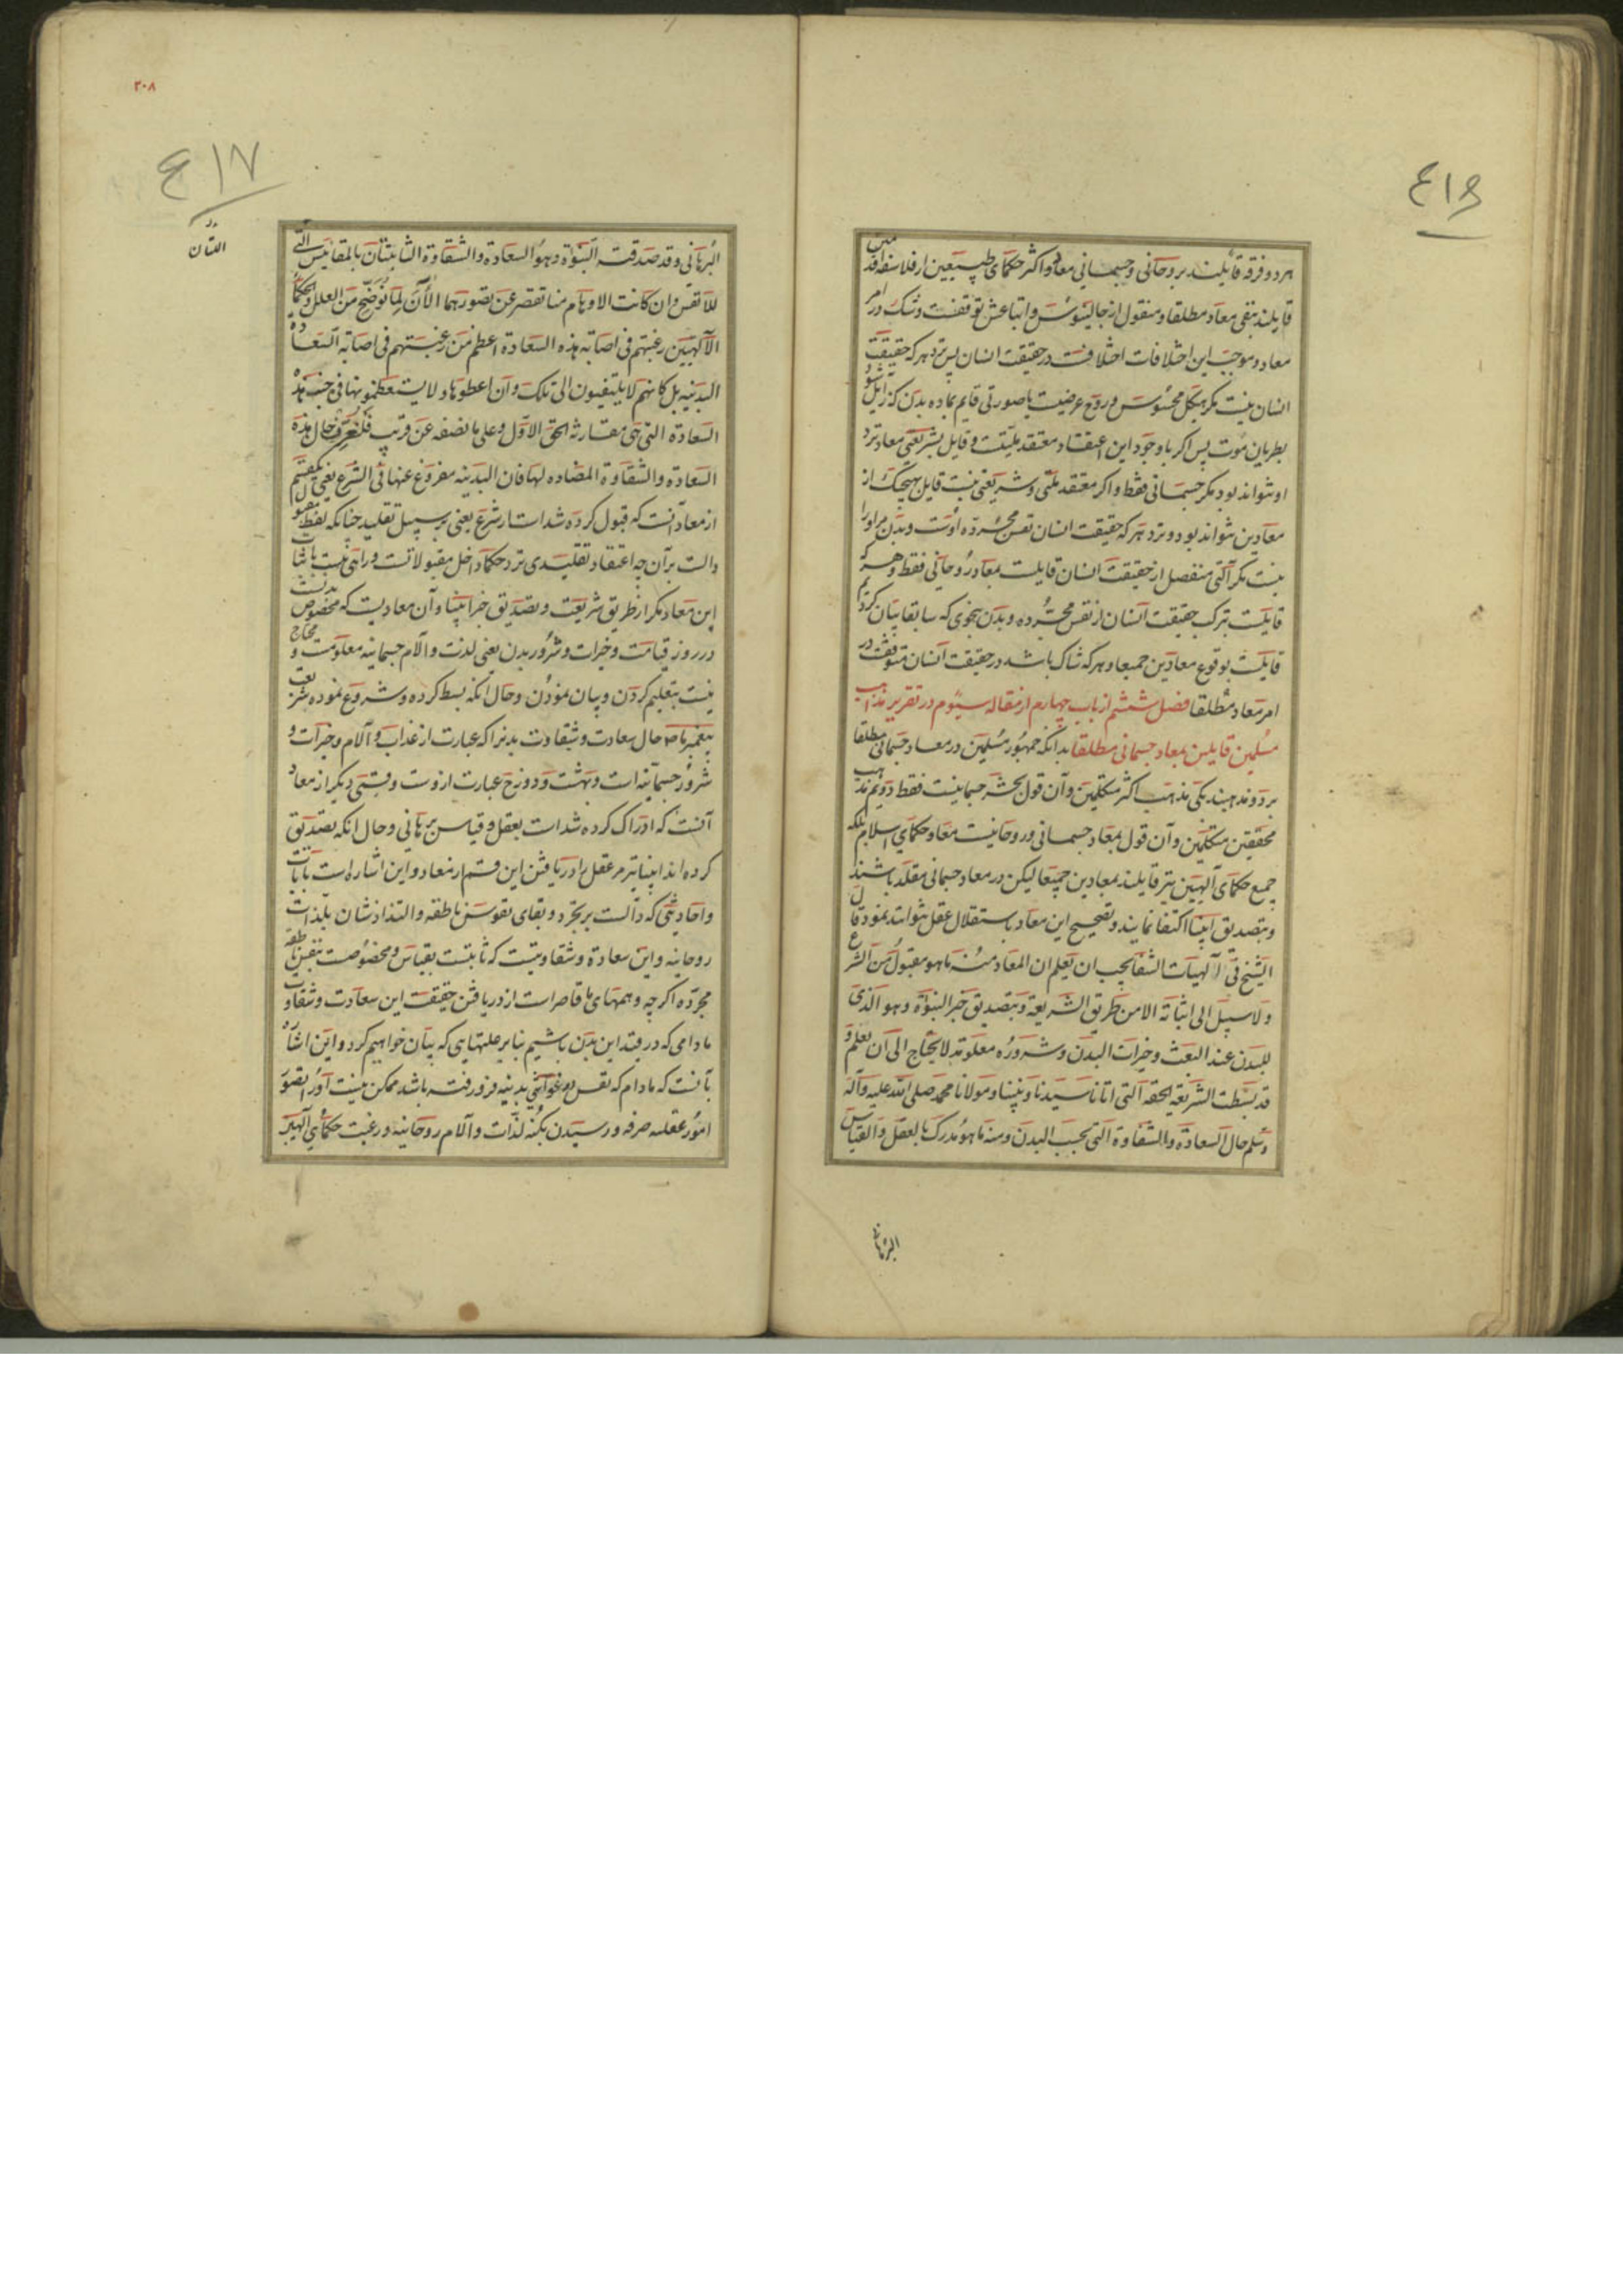 ۴۱۶
هر دو فرقه قایلند بروحانی و جسمانی معاد و اکثر حکمای طبیعیین از فلاسفه قدمین
قایلند بنفی معاد مطلقا و منقول از جالینوس و اتباعش توقفست و شک در امر
معاد و موجب این اختلافات اختلافست در حقیقت انسان پس نزد هر که حقیقت
انسان نیست مکر هیکل محسوس و روح عرضیست یا صورتی قایم بماده بدن که زایل شود
بطریان موت پس اکر با وجود این اعتقاد معتقد ملتیست و قایل بشریعتی معاد نزد
او نتواند بود مکر جسمانی فقط و اکر معتقد ملتی و شریعتی نیست قایل بهیچیک از
معادین نتواند بود و نزد هر که حقیقت انسان نفس مجرده اوست و بدن مر او را
نیست مکر آلتی منفصل از حقیقت انسان قایلست بمعاد روحانی فقط و هر که
قایلست بترکب حقیقت انسان از نفس مجرده و بدن بنحوی که سابقا بیان کردیم
قایلست بوقوع معادین جمیعا و هر که شاک باشد در حقیقت انسان متوقفست در
امر معاد مطلقا فصل ششم از باب چهارم از مقاله سیوم در تقریر مذاهب
مسلمین قایلین بمعاد جسمانی مطلقا بدانکه جمهور مسلمین در معاد جسمانی مطلقا
بر دو مذهبند یکی مذهب اکثر متکلمین و آن قول بحشر جسمانیست فقط دویم مذهب
محققین متکلمین و آن قول بمعاد جسمانی و روحانیست معا و حکمای اسلام بلکه
جمیع حکمای آلهیین نیز قایلند بمعادین جمیعا لیکن در معاد جسمانی مقلد باشند
و بتصدیق انبیا اکتفا نمایند و تصحیح این معاد باستقلال عقل نتوانند نمود قال
الشیخ فی آلهیات الشفا یجب ان یعلم ان المعاد منه ما هو مقبول من الشرع
و لا سبیل الی اثباته الا من طریق الشریعة و تصدیق خبر النبوة و هو الذی
للبدن عند البعث و خیرات البدن و شروره معلومة لا یحتاج الی ان یعلم و
قد بسطت الشریعة الحقه التی اتانا سیدنا و نبینا و مولانا محمد صلی الله علیه و آله
و سلم حال السعادة و الشقاوة التی بحسب البدن و منه ما هو مدرک بالعقل و القیاس
البرهانی
۲۰۸
۴۱۷
البرهانی و قد صدقته النبوة و هو السعادة و الشقاوة الثابتتان بالمقائیس التی
للانفس و ان کانت الاوهام منا تقصر عن تصورهما الآن لما نوضح من العلل و الحکماء
الآلهیین رغبتهم فی اصابة هذه السعادة اعظم من رغبتهم فی اصابة السعادة
البدنیه بل کانهم لا یلتفتون الی تلک و ان اعطوها و لا یستعظمونها فی جنب هذه
السعادة التی هی مقاربة الحق الاول و علی ما نصفه عن قریب فلنعرف حال هذه
السعادة و الشقاوة المضاده لها فان البدنیه مفروغ عنها فی الشرع یعنی یکقسم
از معاد آنست که قبول کرده شده است از شرع یعنی بر سبیل تقلید چنانکه لفظ مقبول
دالست بر آن چه اعتقاد تقلیدی نزد حکما داخل مقبولاتست و راهی نیست باثبات
این معاد مکر از طریق شریعت و تصدیق خبر انبیا و آن معادیست که مخصوص بدنست
در روز قیامت و خیرات و شرور بدن یعنی لذت و آلام جسمانیه معلومست و محتاج
نیست بتعلیم کردن و بیان نمودن و حال انکه بسط کرده و شروع نموده شریعت
پیغمبر ما ص حال سعادت و شقاوت بدنرا که عبارت از عذاب و آلام و خیرات و
شرور جسمانیه است و بهشت و دوزخ عبارت ازوست و قسمی دیکر از معاد
آنست که ادراک کرده شده است بعقل و قیاس برهانی و حال انکه تصدیق
کرده اند انبیا نیز مر عقل را در یافتن این قسم از معاد و این اشاره است بآیات
و احادیثی که دالست بر تجرد و بقای نفوس ناطقه و التذاذشان بلذات
روحانیه و این سعادة و شقاوتیست که ثابتست بقیاس و مخصوصست بنفس ناطقه
مجرده اکرچه وهمهای ما قاصر است از دریافتن حقیقت این سعادت و شقاوت
مادامی که در قید این بدن باشیم بنابر علتهایی که بیان خواهیم کرد و این اشاره
بآنست که مادام که نفس در غواشی بدنیه فرو رفته باشد ممکن نیست او را تصور
امور عقلیه صرفه و رسیدن بکنه لذات و آلام روحانیه و رغبت حکمای آلهیین